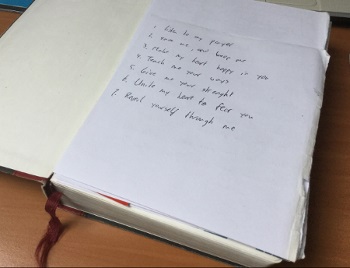 1. Listen to my prayer
2. Hear me, and keep me
3. Make my heart happy in you
4. Teach me your ways
5. Give me your strength
6. Unite my heart to fear you
7. Reveal yourself through me